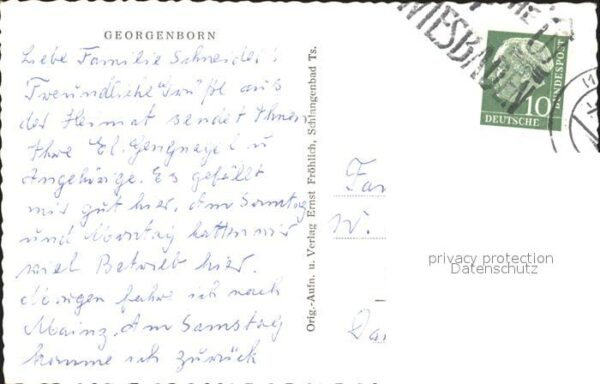 GEORGENBORN
Liebe Familie Schneider!
Freundliche Grüße aus
der Heimat sendet Ihnen
Ihre El. Gengnagel u
Angehörige. Es gefällt
mir gut hier. Am Samstag
und Montag hatten wir
viel Betrieb hier.
Morgen fahre ich nach
Mainz. Am Samstag
komme ich zurück
Orig.-Aufn. u. Verlag Ernst Fröhlich, Schlangenbad Ts.
WIESBADEN
10
DEUTSCHE
BUNDESPOST
Fam
W.
Da
privacy protection
Datenschutz